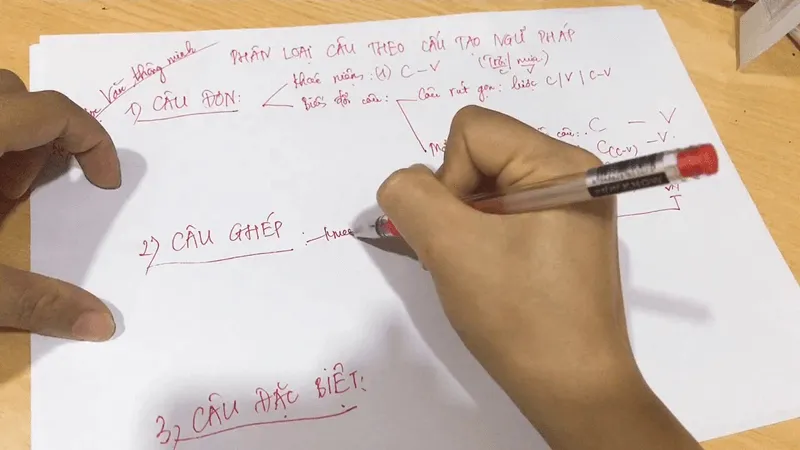 Văn thông minh
PHÂN LOẠI CÂU THEO CẤU TẠO NGỮ PHÁP
1) CÂU ĐƠN:
khái niệm: (1) C - V (Trời / mưa)
C V
Biến đổi câu: Câu rút gọn: bớt C | V | C-V
Mở câu: C - V
C (C-V) - V
2) CÂU GHÉP :
3) CÂU ĐẶC BIỆT: